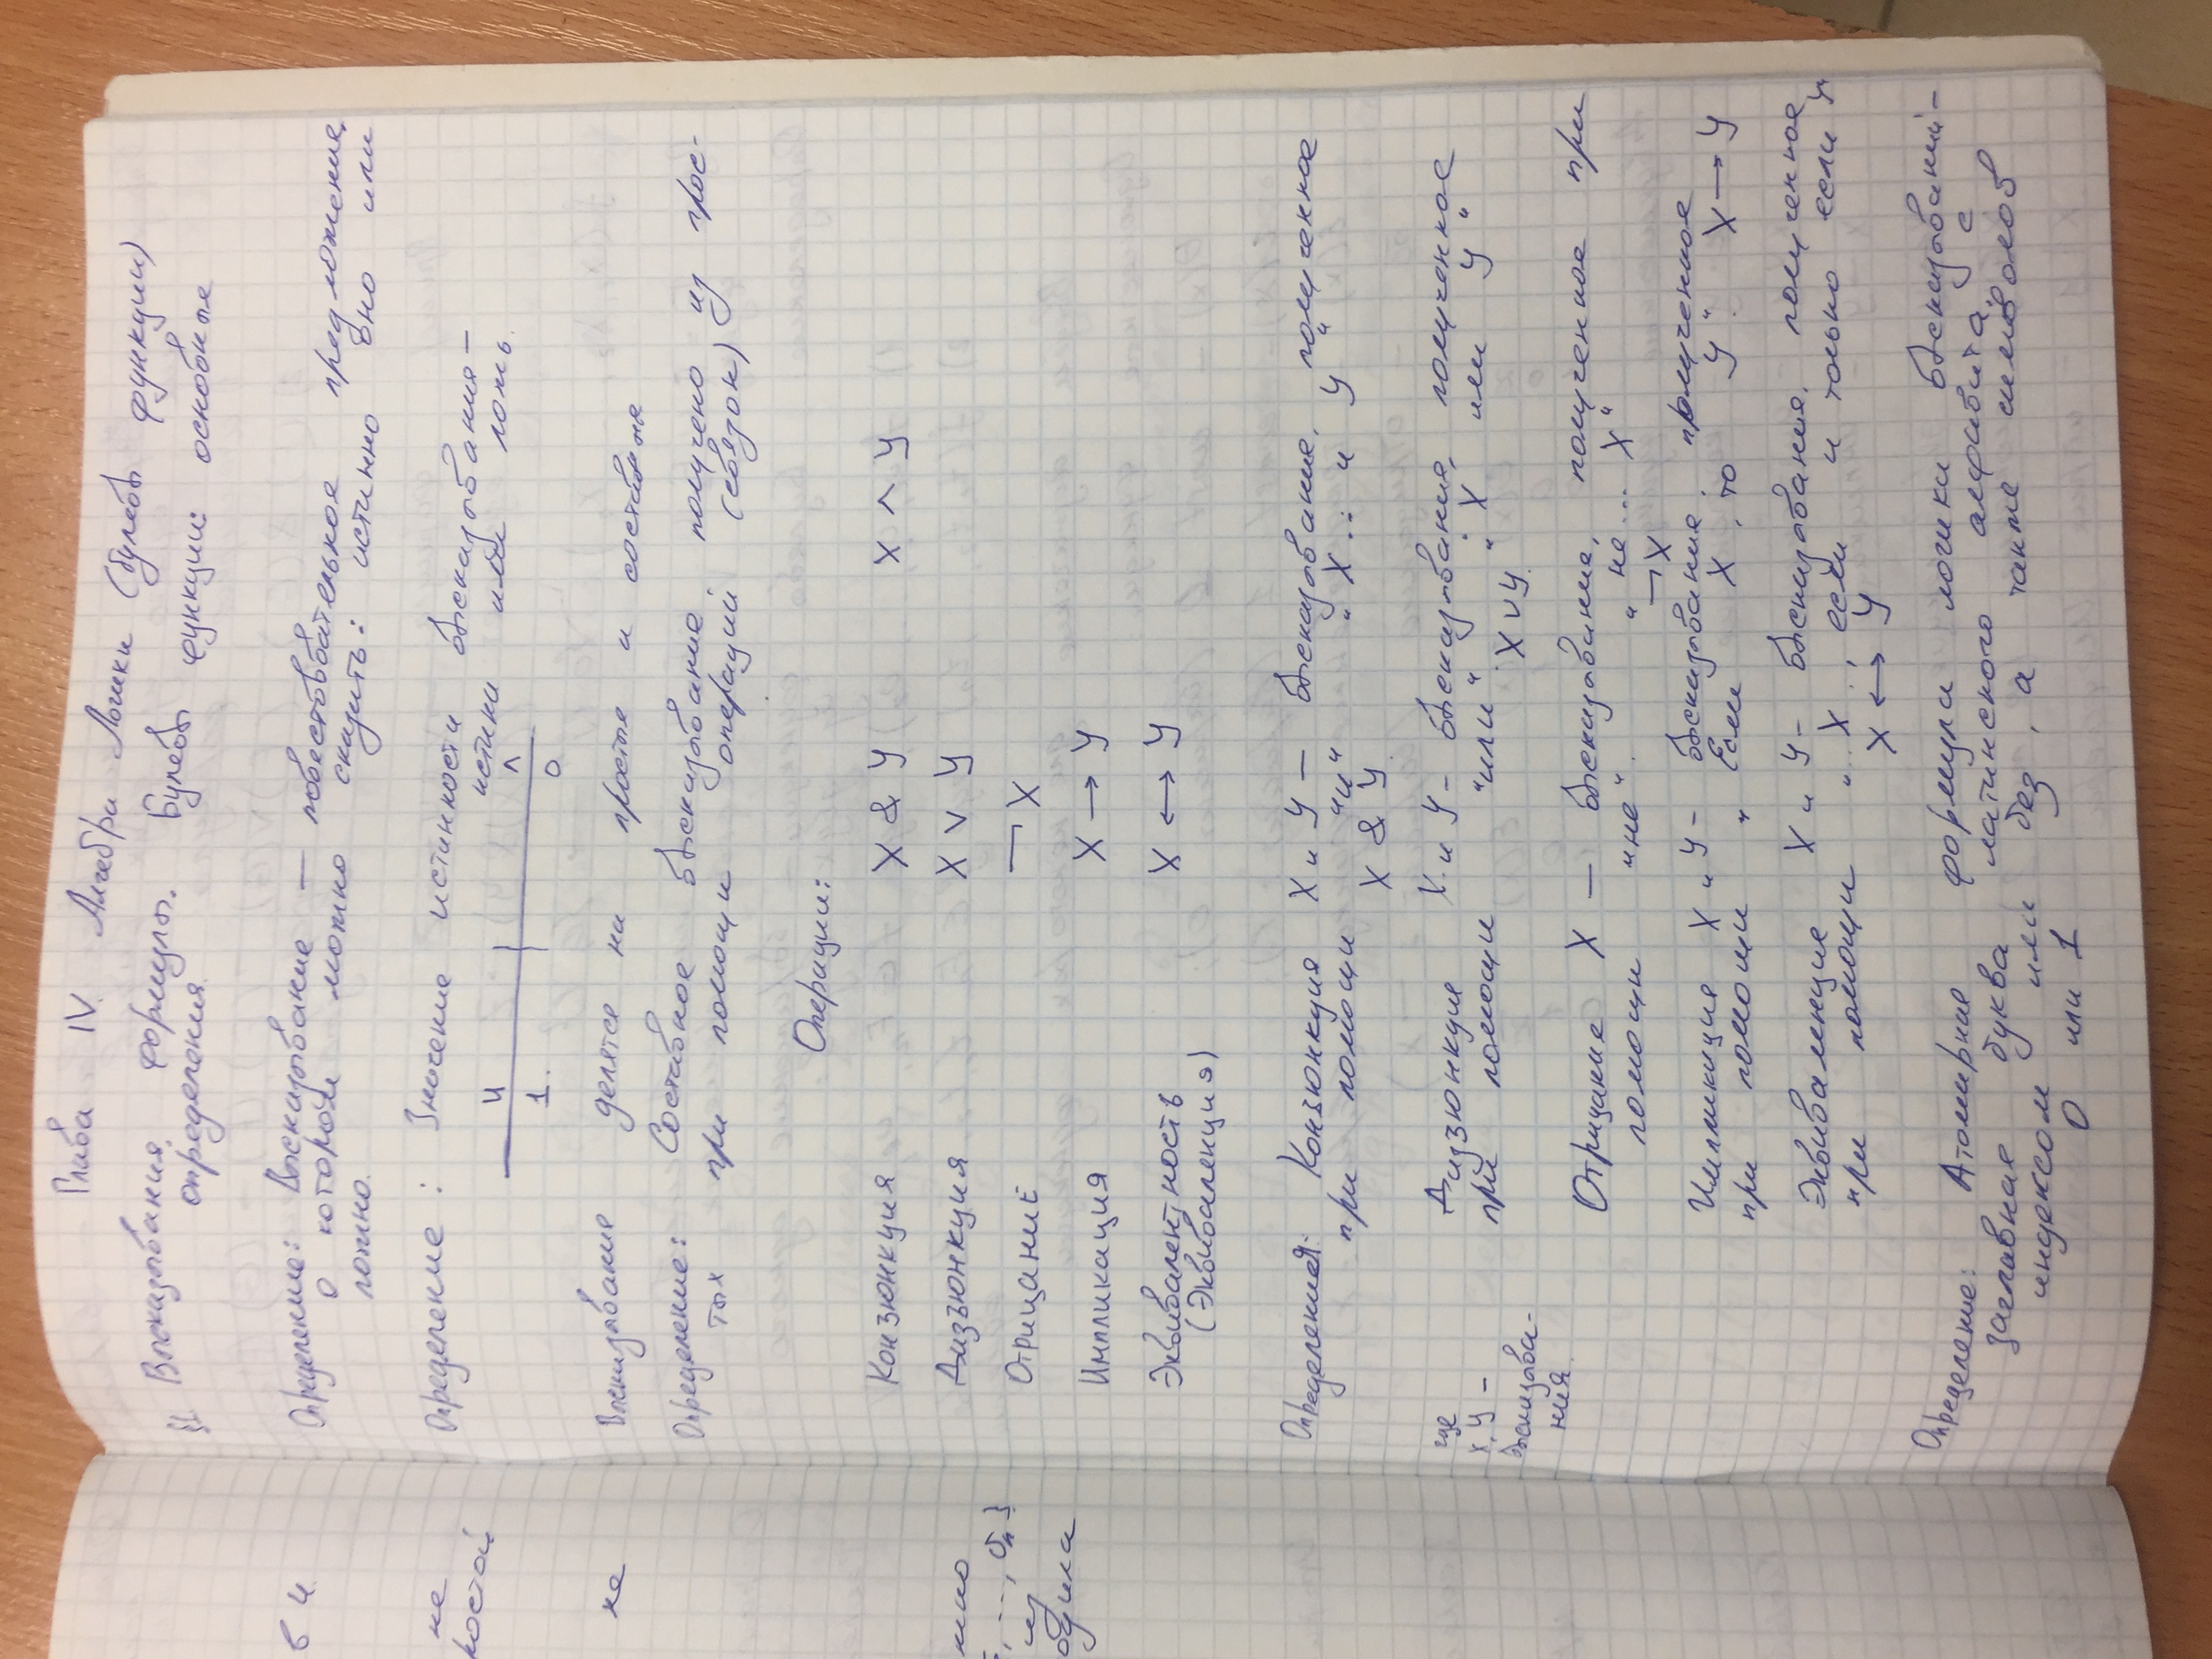 Глава IV. Алгебра Логики (булевы функции)
§1. Высказывания, формулы. Булевы функции: основные
определения.
Определение: Высказывание — повествовательное предложение,
о котором можно сказать: истинно оно или
ложно.
Определение: Значение истинности высказывания —
истина или ложь.
И | Л
1. | 0
Высказывание делятся на простые и составные
Определение: Составное высказывание получено из прос-
тых при помощи операций (связок)
Операции:
Конзюнкция X & Y X ∧ Y
Дизъюнкция X ∨ Y
Отрицание ¬ X
Импликация X → Y
Эквивалентность X ↔ Y
(Эквиваленция)
Определения: Конзюнкция X и Y — высказывание, полученное
при помощи "и" „ X .: и Y "
X & Y.
где
X, Y —
высказыва-
ния.
Дизюнкция X и Y — высказывание, полученное
при помощи "или". „: X или Y "
X ∨ Y.
Отрицание X — высказывание, полученное при
помощи "не". „ не... X"
¬X
Импликация X и Y — высказывание, полученное
при помощи „ Если X , то Y ". X → Y
Эквиваленция X и Y — высказывание, полученное
при помощи „.. X .., если и только если Y"
X ↔ Y
Определение: Атомарная формула логики высказываний —
заглавная буква латинского алфавита, с
индексом или без, а также символов
0 или 1
в И.
не
ростой
не
, ..., σn }
из